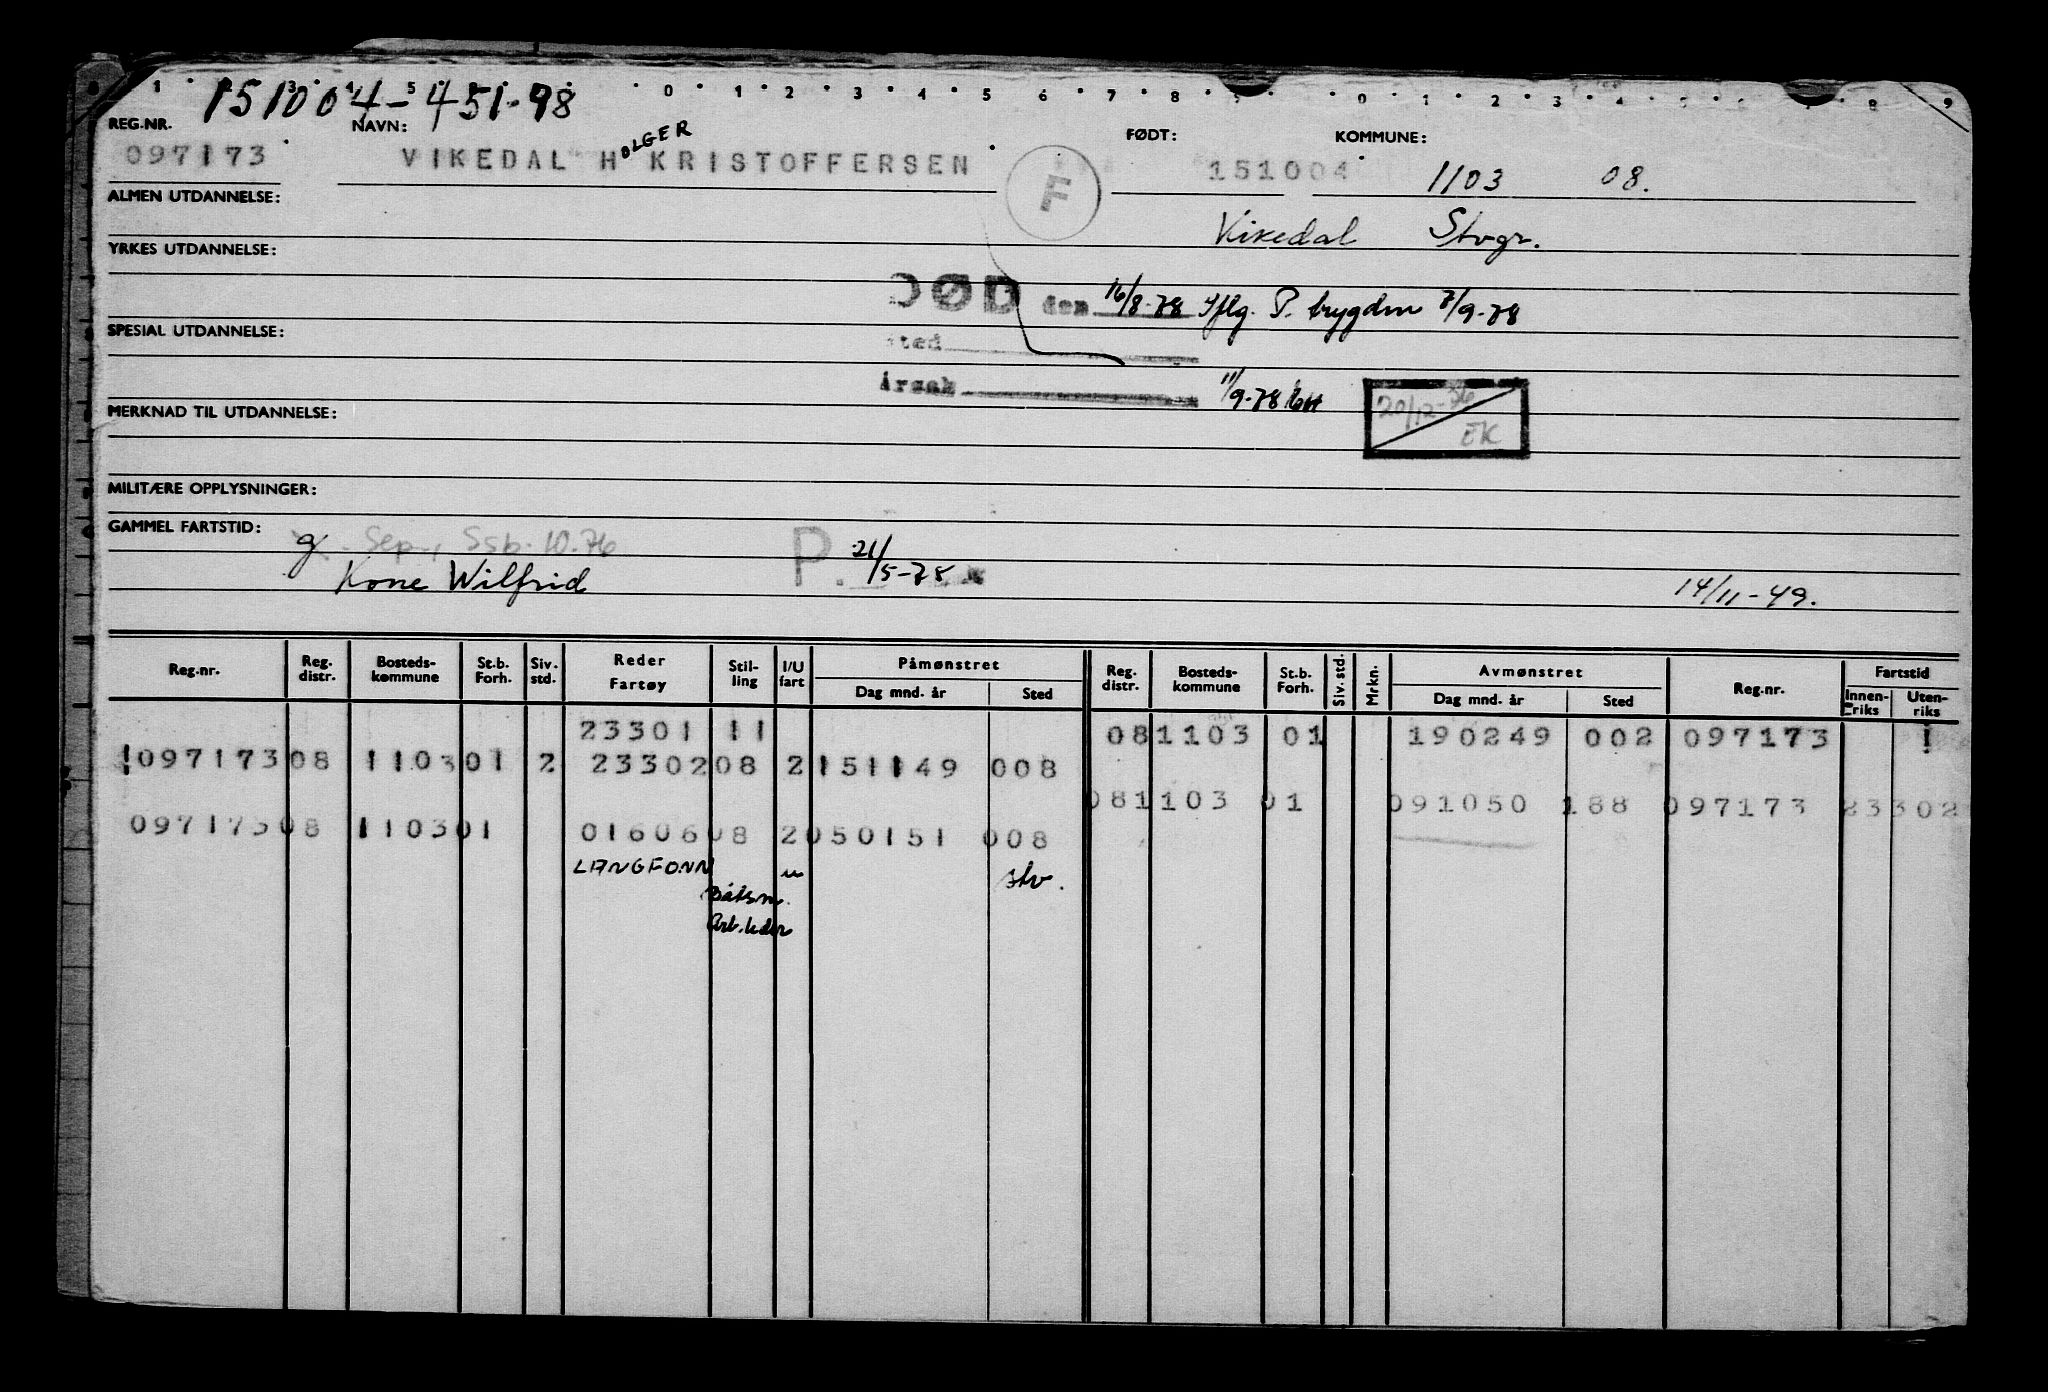 151004-45198
REG.NR. NAVN: FØDT: KOMMUNE:
097173 VIKEDAL HOLGER KRISTOFFERSEN 151004 1103 08.
F
ALMEN UTDANNELSE:
Vikedal Stvgr.
YRKES UTDANNELSE:
DØD den 16/8-78 Iflg. P. trygden 7/9-78
SPESIAL UTDANNELSE:
sted
Årsak 11/9-78
20/12-56
EK
MERKNAD TIL UTDANNELSE:
MILITÆRE OPPLYSNINGER:
GAMMEL FARTSTID:
g Sep., Ssb. 10.76 P. 21/5-78
Kone Wilfrid 14/11-49.
Reg.nr. Reg. distr. Bosteds-kommune St.b. Forh. Siv. std. Reder Fartøy Stil-ling I/U fart Påmønstret Dag mnd. år Sted Reg. distr. Bosteds-kommune St.b. Forh. Siv. std. Mrkn. Avmønstret Dag mnd. år Sted Reg.nr. Fartstid Innen-riks Uten-riks
23301 11 08 1103 01 190249 002 097173 !
!097173 08 1103 01 2 23302 08 2 151149 008
08 1103 01 091050 188 097173 23302
097173 08 1103 01 01606 08 2 050151 008
LANGFONN u Stv.
Båtsm.
Arb.leder